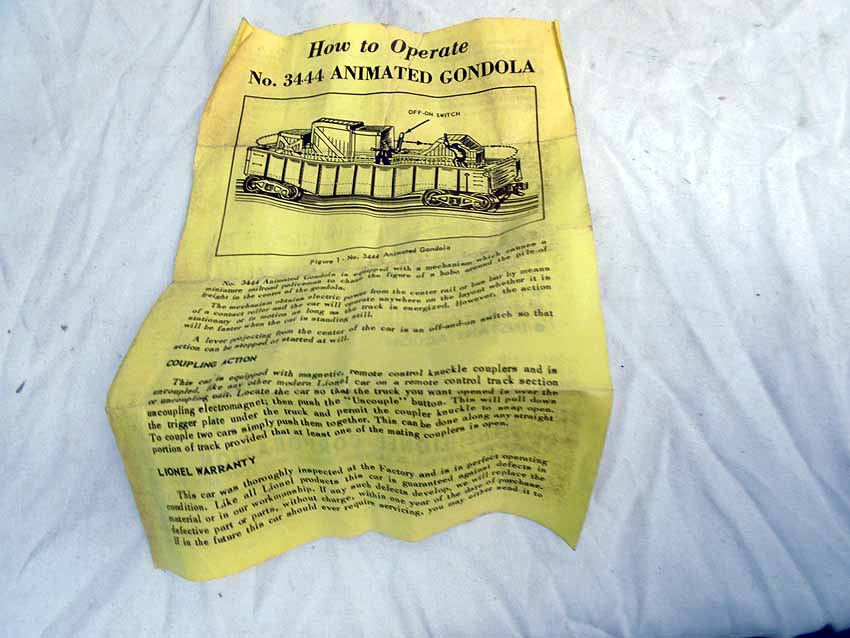 How to Operate
No. 3444 ANIMATED GONDOLA
OFF-ON SWITCH
Figure 1 - No. 3444 Animated Gondola
No. 3444 Animated Gondola is equipped with a mechanism which causes a
miniature railroad policeman to chase the figure of a hobo around the pile of
freight in the center of the gondola.
The mechanism obtains electric power from the center rail or buss bar by means
of a contact roller and the car will operate anywhere on the layout whether it is
stationary or in motion as long as the track is energized. However, the action
will be faster when the car is standing still.
A lever projecting from the center of the car is an off-and-on switch so that
action can be stopped or started at will.
COUPLING ACTION
This car is equipped with magnetic, remote control knuckle couplers and is
uncoupled, like any other modern Lionel car on a remote control track section
or uncoupling unit. Locate the car so that the truck you want opened is over the
uncoupling electromagnet; then push the "Uncouple" button. This will pull down
the trigger plate under the truck and permit the coupler knuckle to snap open.
To couple two cars simply push them together. This can be done along any straight
portion of track provided that at least one of the mating couplers is open.
LIONEL WARRANTY
This car was thoroughly inspected at the Factory and is in perfect operating
condition. Like all Lionel products this car is guaranteed against defects in
material or in our workmanship. If any such defects develop, we will replace the
defective part or parts, without charge, within one year of the date of purchase.
If in the future this car should ever require servicing, you may either send it to